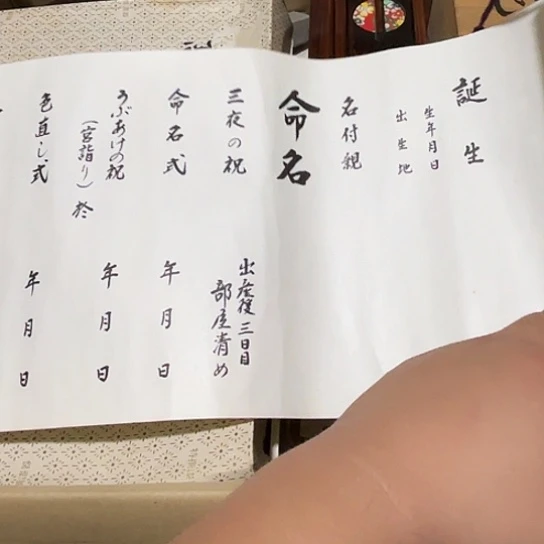 誕生
生年月日
出生地
名付親
命名
三夜の祝 出産後三日目
部屋清め
命名式 年月日
うぶあけの祝 年月日
(宮詣り) 於
色直し式 年月日